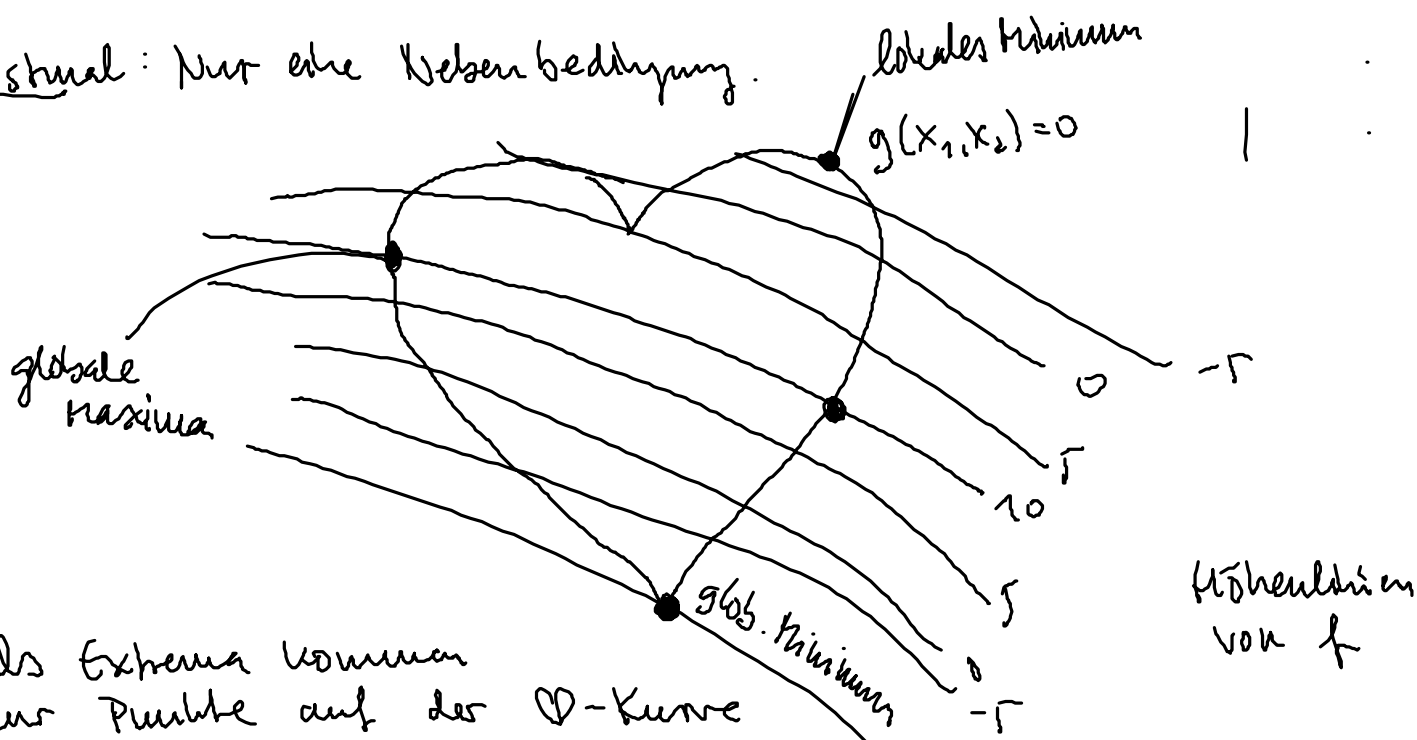 stmal: Nur eine Nebenbedingung.
lokales Minimum
g(x₁,x₂)=0
globale
Maxima
-5
0
5
10
5
0
-5
glob. Minimum
Höhenlinien
von f
ls Extrema kommen
ur Punkte auf der ♡-Kurve